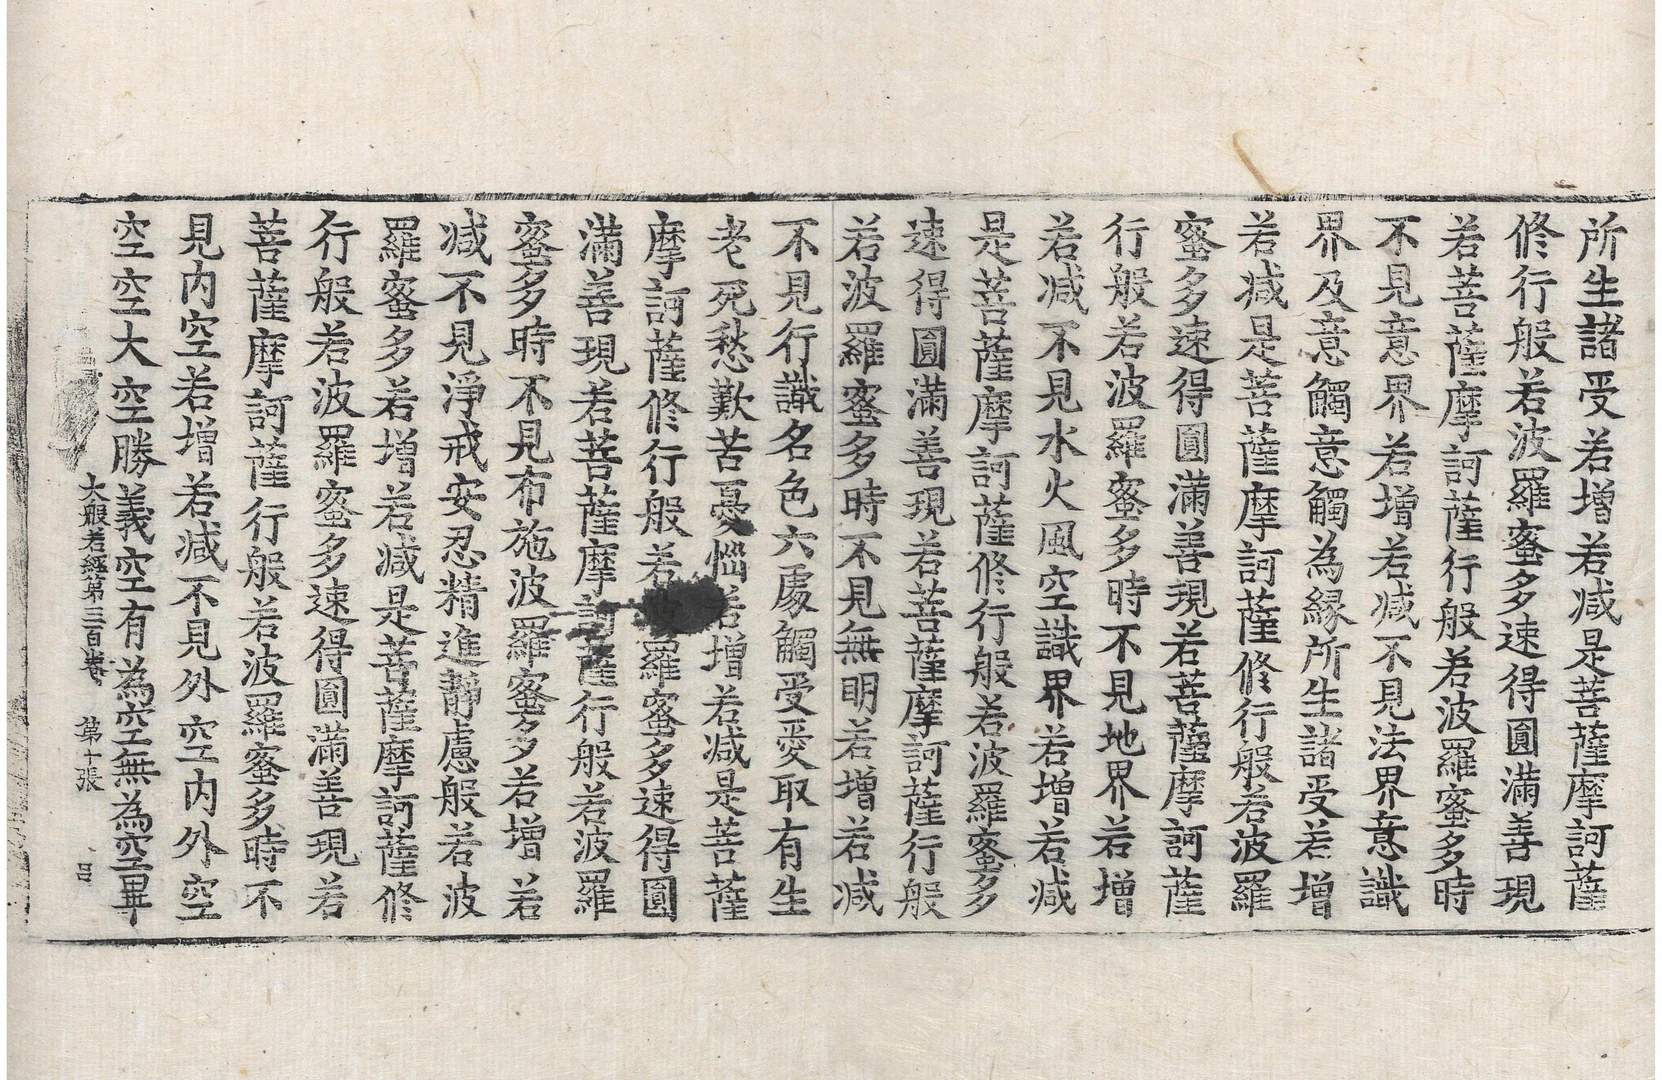 所生諸受若增若减是菩薩摩訶薩
修行般若波羅蜜多速得圓滿善現
若菩薩摩訶薩行般若波羅蜜多時
不見意界若增若减不見法界意識
界及意觸意觸為緣所生諸受若增
若减是菩薩摩訶薩修行般若波羅
蜜多速得圓滿善現若菩薩摩訶薩
行般若波羅蜜多時不見地界若增
若减不見水火風空識界若增若减
是菩薩摩訶薩修行般若波羅蜜多
速得圓滿善現若菩薩摩訶薩行般
若波羅蜜多時不見無明若增若减
不見行識名色六處觸受愛取有生
老死愁歎苦憂惱若增若减是菩薩
摩訶薩修行般若羅蜜多速得圓
滿善現若菩薩摩訶薩行般若波羅
蜜多時不見布施波羅蜜多若增若
减不見淨戒安忍精進靜慮般若波
羅蜜多若增若减是菩薩摩訶薩修
行般若波羅蜜多速得圓滿善現若
菩薩摩訶薩行般若波羅蜜多時不
見內空若增若减不見外空內外空
空空大空勝義空有為空無為空畢
大般若經第三百卷 第十張 吕